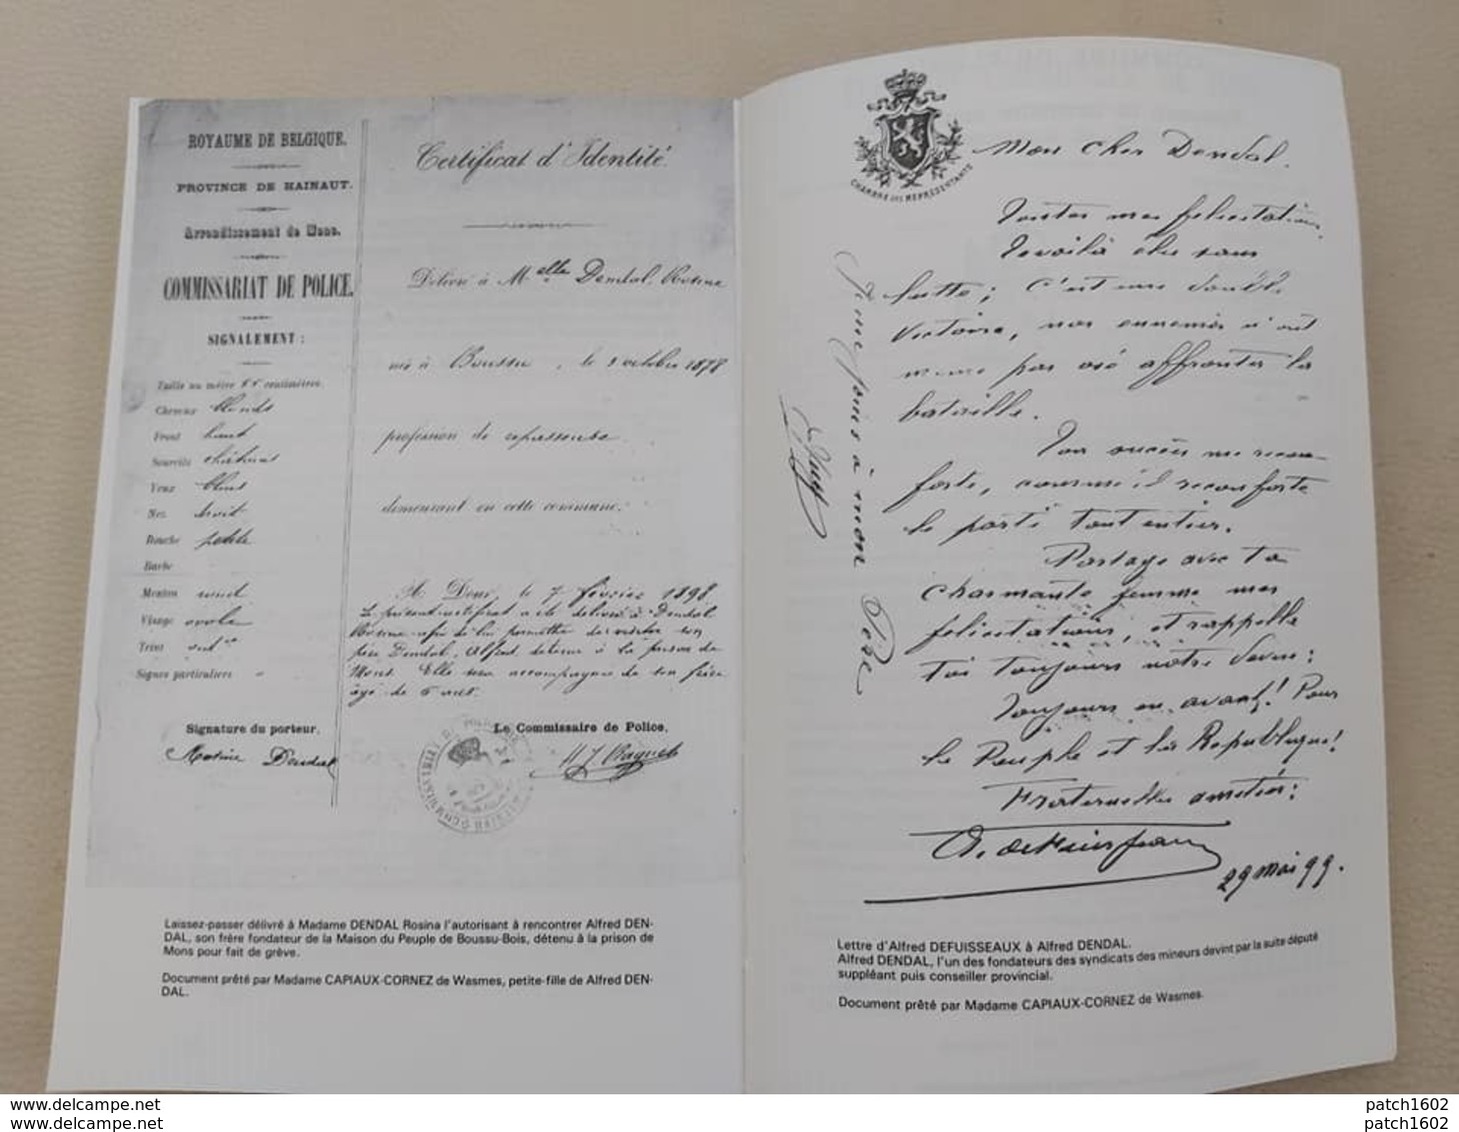 ROYAUME DE BELGIQUE.
PROVINCE DE HAINAUT.
Arrondissement de Mons.
COMMISSARIAT DE POLICE.
SIGNALEMENT :
Taille un mètre centimètres.
Cheveux blonds
Front haut
Sourcils châtains
Yeux bleus
Nez droit
Bouche petite
Barbe
Menton rond
Visage ovale
Teint
Signes particuliers
Signature du porteur,
Dendal
Certificat d'Identité.
Délivré à Melle Dendal, Rosine
née à Boussu, le 1 octobre 1878
profession de repasseuse
demeurant en cette commune.
A Dour, le 7 février 1898
Le présent certificat a été délivré à Dendal
Rosine afin de lui permettre de visiter son
père Dendal, Alfred détenu à la prison de
Mons. Elle sera accompagnée de son frère
âgé de 6 ans.
Le Commissaire de Police,
Laissez-passer délivré à Madame DENDAL Rosina l'autorisant à rencontrer Alfred DEN-
DAL, son frère fondateur de la Maison du Peuple de Boussu-Bois, détenu à la prison de
Mons pour fait de grève.
Document prêté par Madame CAPIAUX-CORNEZ de Wasmes, petite-fille de Alfred DEN-
DAL.
CHAMBRE DES REPRÉSENTANTS
Mon cher Dendal.
Toutes mes félicitations.
Te voilà élu sans
lutte ; c'est une double
victoire, nos ennemis n'ont
même pas osé affronter la
bataille.
Ton succès me récon-
forte, comme il réconforte
le parti tout entier.
Partage avec ta
charmante femme mes
félicitations, et rappelle
toi toujours notre devise :
Toujours en avant ! Pour
le Peuple et la République !
Fraternelles amitiés :
A. Defuisseaux
29 mai 99.
à mon Père
Lettre d'Alfred DEFUISSEAUX à Alfred DENDAL.
Alfred DENDAL, l'un des fondateurs des syndicats des mineurs devint par la suite député
suppléant puis conseiller provincial.
Document prêté par Madame CAPIAUX-CORNEZ de Wasmes.
www.delcampe.net
www.delcampe.net
patch1602
patch1602